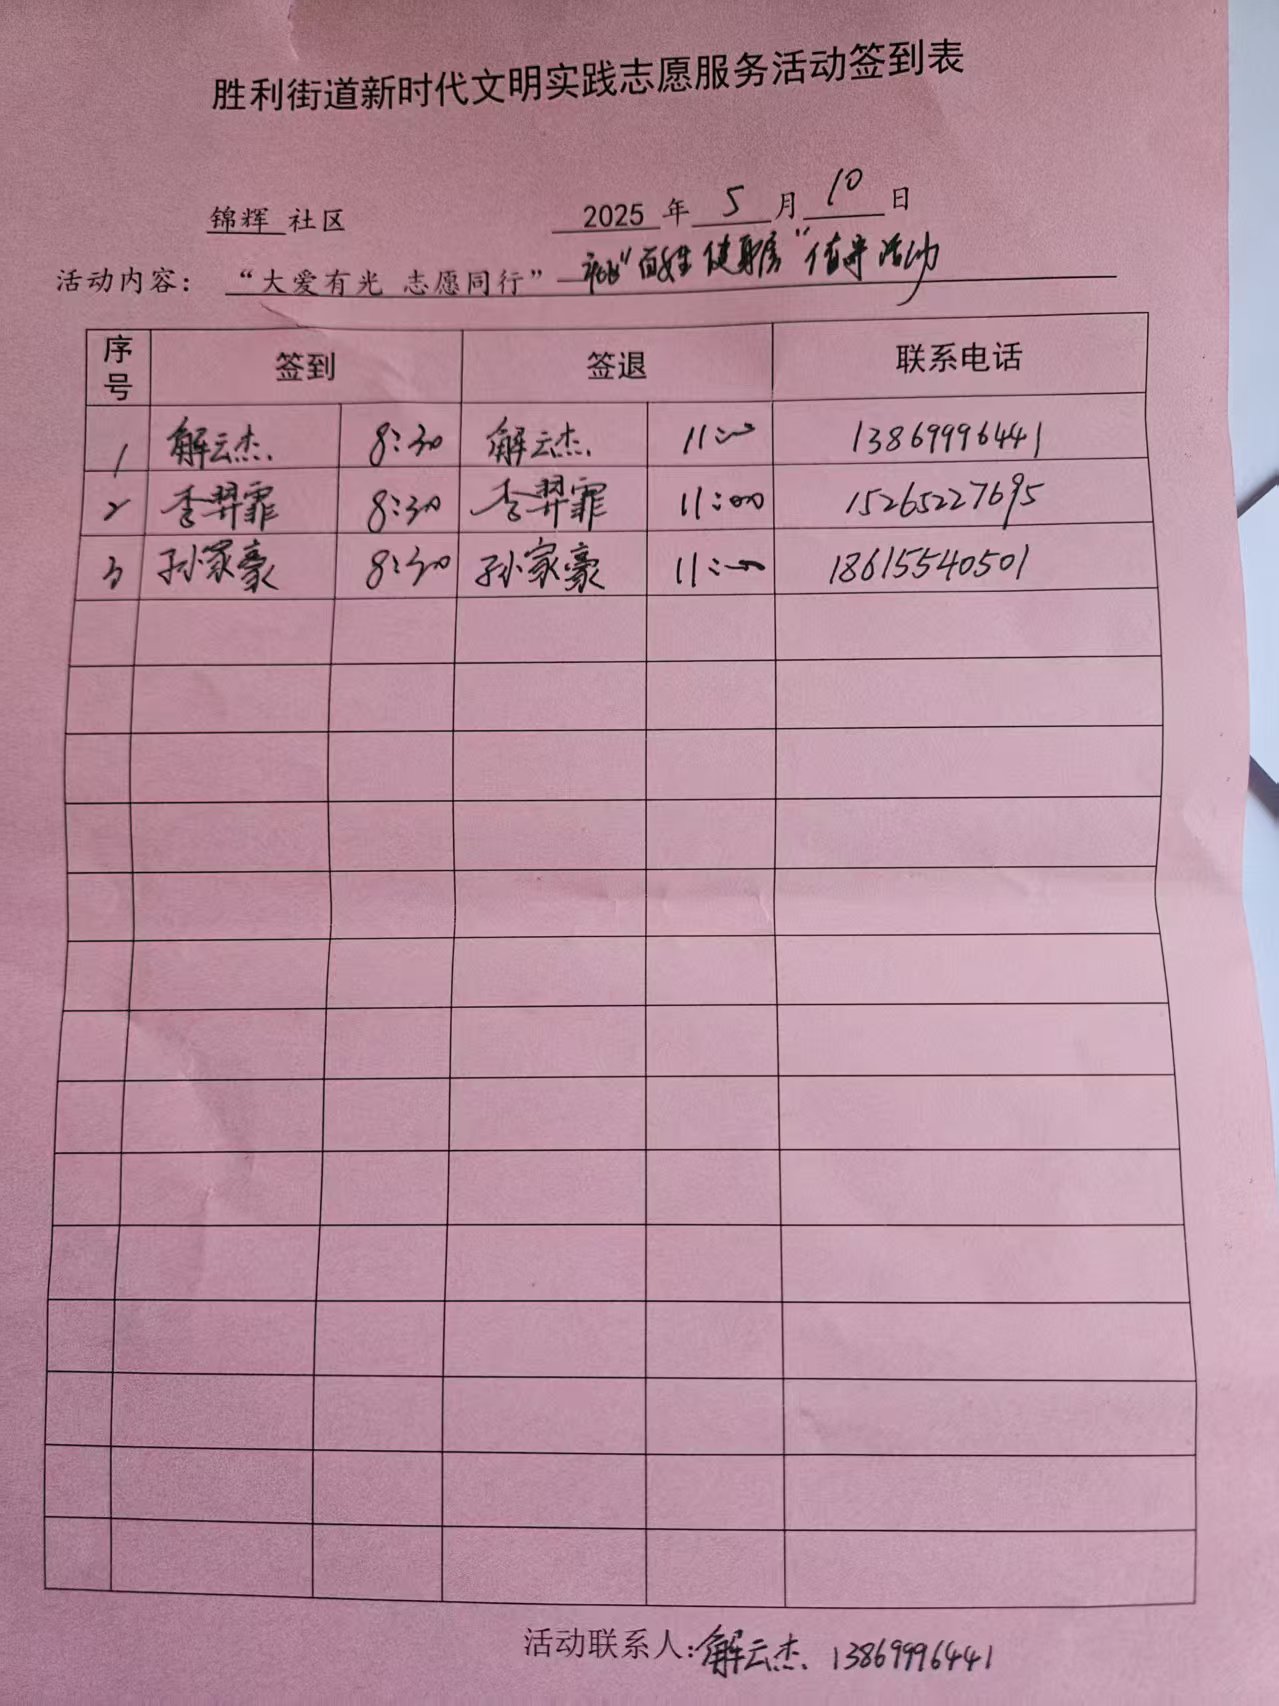 胜利街道新时代文明实践志愿服务活动签到表
锦辉 社区 2025 年 5 月 10 日
活动内容：“大爱有光 志愿同行” “百姓健身房”值守活动
序号 签到 签退 联系电话
1 解云杰. 8:30 解云杰. 11:00 13869996441
2 李羿霏 8:30 李羿霏 11:00 15265227695
3 孙家豪 8:30 孙家豪 11:00 18615540501
活动联系人：解云杰. 13869996441